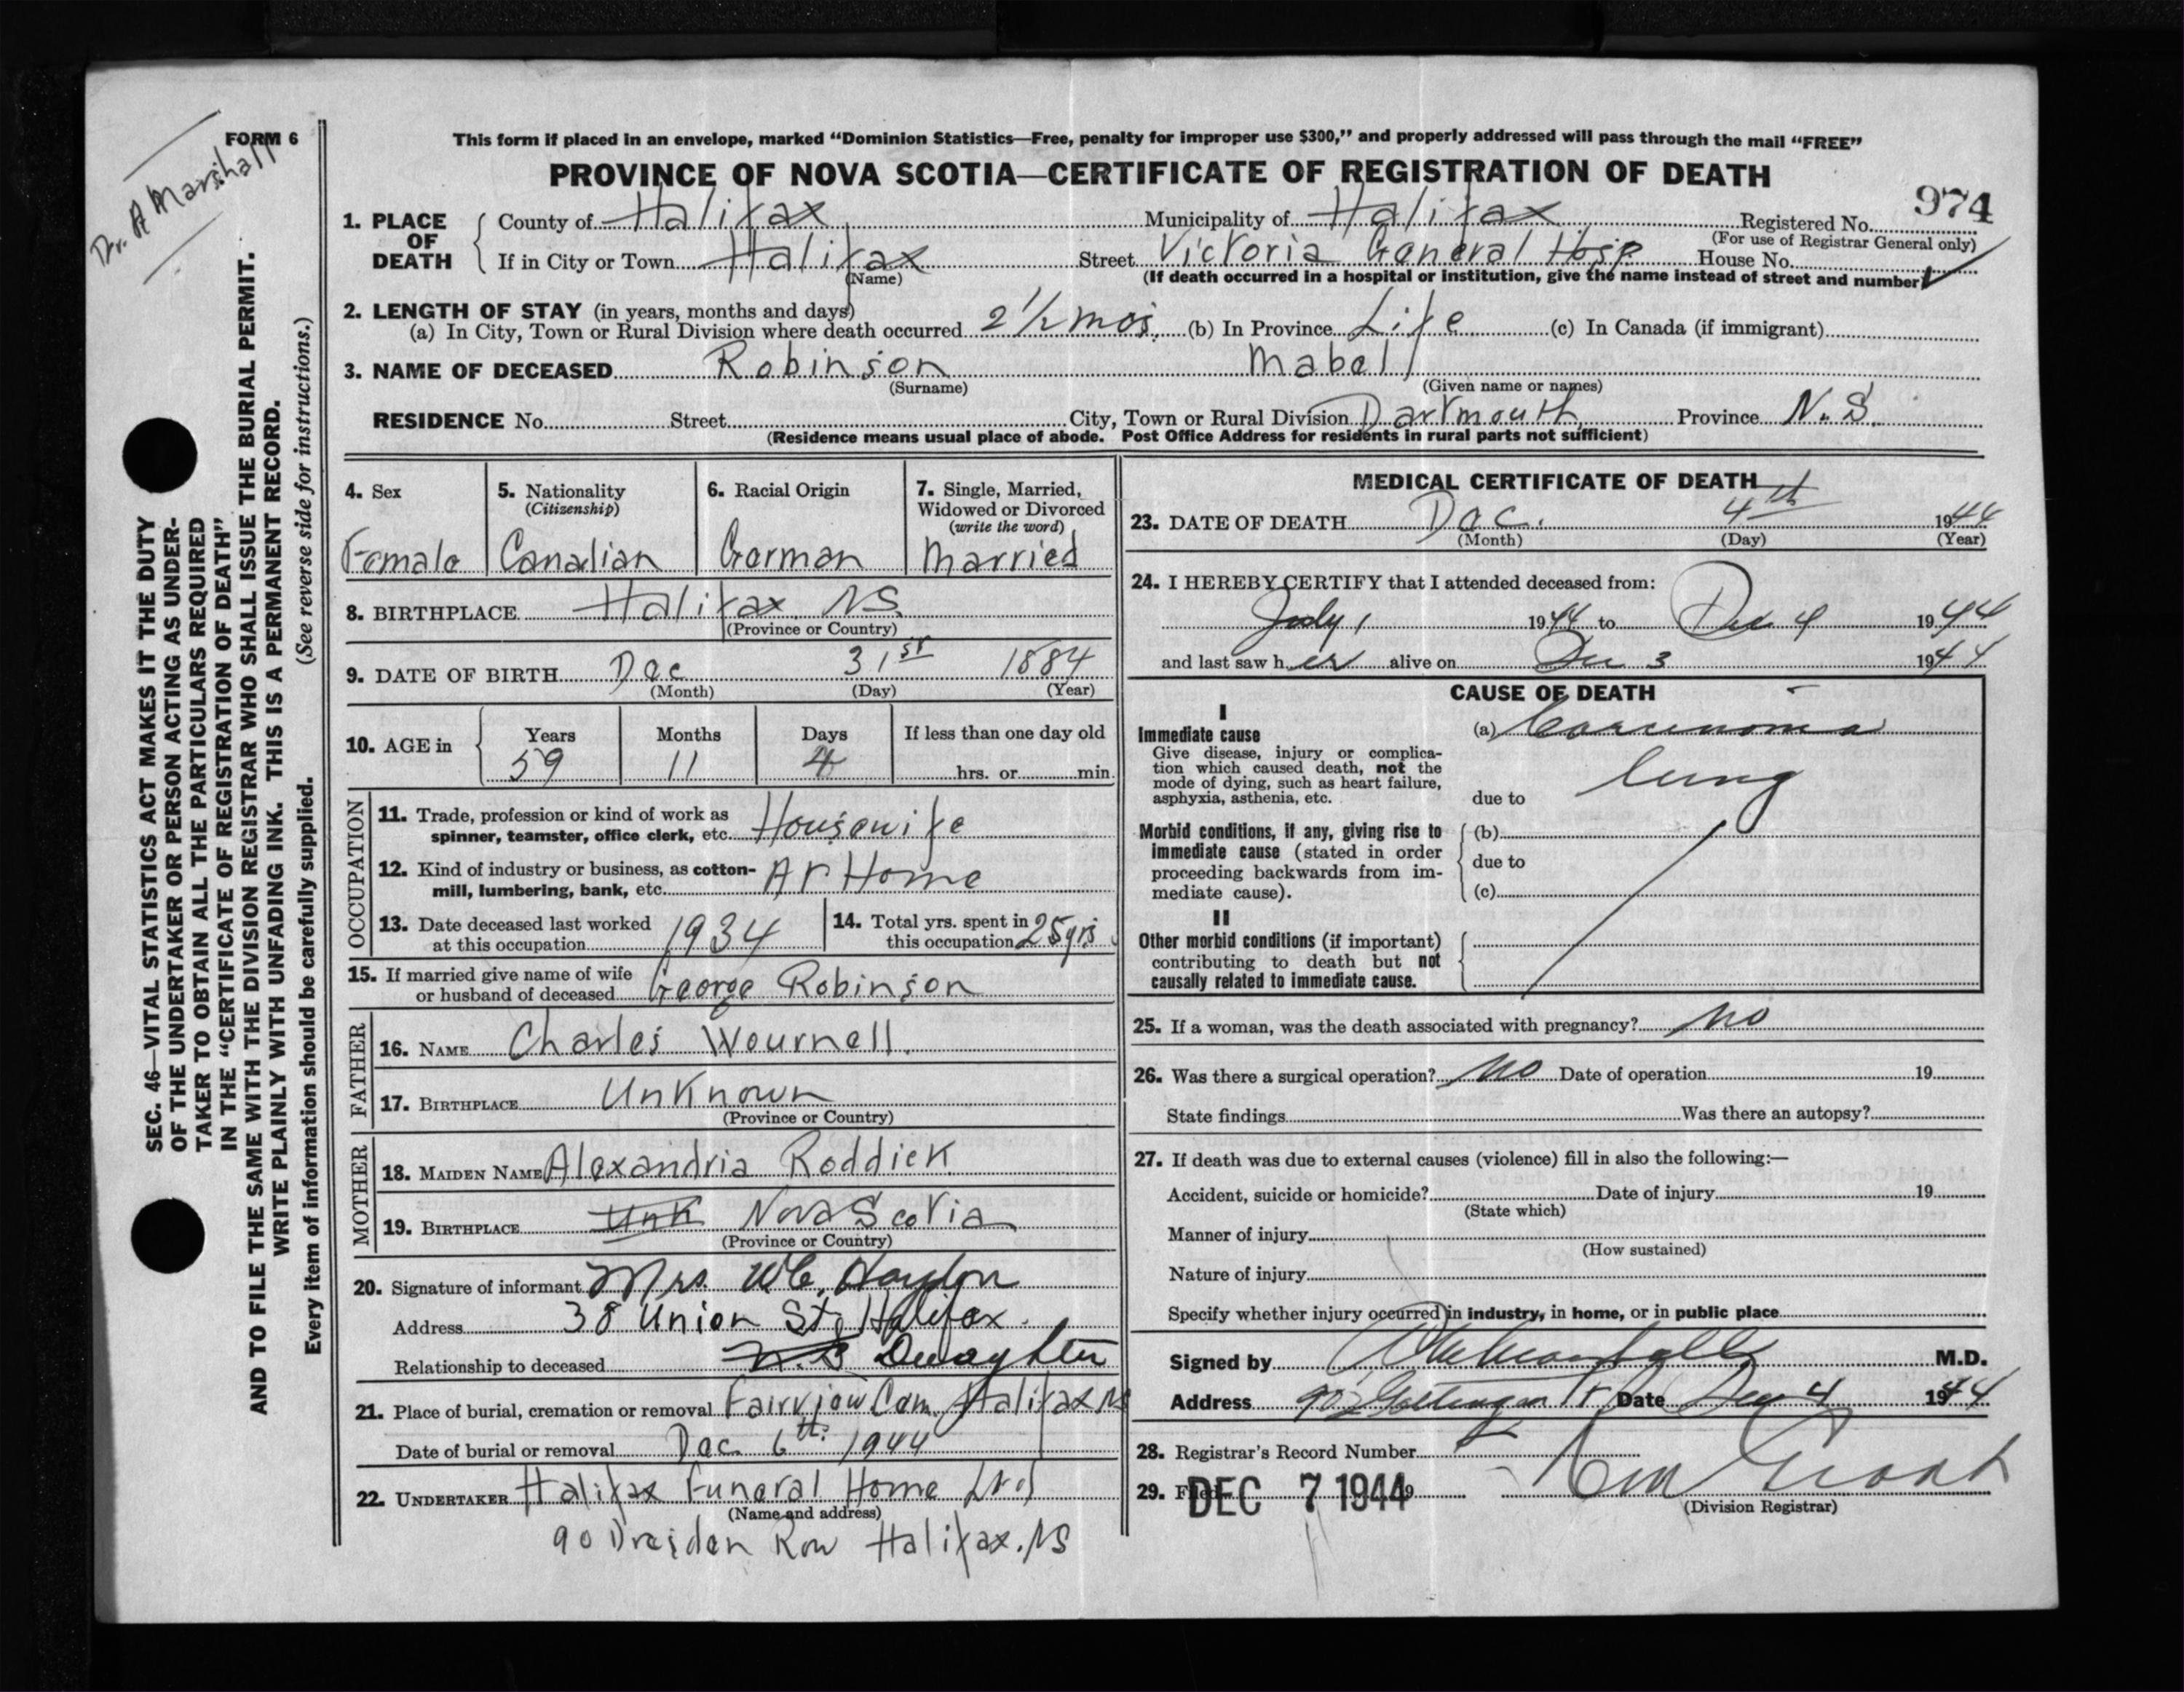 Dr. A Marshall
FORM 6
SEC. 46—VITAL STATISTICS ACT MAKES IT THE DUTY
OF THE UNDERTAKER OR PERSON ACTING AS UNDER-
TAKER TO OBTAIN ALL THE PARTICULARS REQUIRED
IN THE "CERTIFICATE OF REGISTRATION OF DEATH"
AND TO FILE THE SAME WITH THE DIVISION REGISTRAR WHO SHALL ISSUE THE BURIAL PERMIT.
WRITE PLAINLY WITH UNFADING INK. THIS IS A PERMANENT RECORD.
Every item of information should be carefully supplied. (See reverse side for instructions.)
This form if placed in an envelope, marked "Dominion Statistics—Free, penalty for improper use $300," and properly addressed will pass through the mail "FREE"
PROVINCE OF NOVA SCOTIA—CERTIFICATE OF REGISTRATION OF DEATH
974
1. PLACE OF DEATH County of Halifax Municipality of Halifax Registered No.
(For use of Registrar General only)
If in City or Town Halifax Street Victoria General Hosp House No.
(Name) (If death occurred in a hospital or institution, give the name instead of street and number)
2. LENGTH OF STAY (in years, months and days)
(a) In City, Town or Rural Division where death occurred 2 1/2 mos. (b) In Province Life (c) In Canada (if immigrant)
3. NAME OF DECEASED Robinson Mabel
(Surname) (Given name or names)
RESIDENCE No. Street City, Town or Rural Division Dartmouth Province N.S.
(Residence means usual place of abode. Post Office Address for residents in rural parts not sufficient)
4. Sex
Female
5. Nationality
(Citizenship)
Canadian
6. Racial Origin
German
7. Single, Married,
Widowed or Divorced
(write the word)
Married
8. BIRTHPLACE Halifax NS.
(Province or Country)
9. DATE OF BIRTH Dec 31st 1884
(Month) (Day) (Year)
10. AGE in Years Months Days If less than one day old
59 11 4 hrs. or min.
OCCUPATION
11. Trade, profession or kind of work as
spinner, teamster, office clerk, etc. Housewife
12. Kind of industry or business, as cotton-
mill, lumbering, bank, etc. At Home
13. Date deceased last worked
at this occupation 1934
14. Total yrs. spent in
this occupation 25 yrs
15. If married give name of wife
or husband of deceased George Robinson
FATHER
16. NAME Charles Wournell
17. BIRTHPLACE Unknown
(Province or Country)
MOTHER
18. MAIDEN NAME Alexandria Roddick
19. BIRTHPLACE Unk Nova Scotia
(Province or Country)
20. Signature of informant Mrs. W.C. Haydon
Address 38 Union St, Halifax.
Relationship to deceased N.S Duaghter
21. Place of burial, cremation or removal Fairview Cem. Halifax NS
Date of burial or removal Dec. 6th. 1944
22. UNDERTAKER Halifax Funeral Home Ltd
(Name and address)
90 Dresden Row Halifax. NS
MEDICAL CERTIFICATE OF DEATH
23. DATE OF DEATH Dec. 4th 1944
(Month) (Day) (Year)
24. I HEREBY CERTIFY that I attended deceased from:
July 1 1944 to Dec 4 1944
and last saw her alive on Dec 3 1944
CAUSE OF DEATH
I
Immediate cause
Give disease, injury or complica-
tion which caused death, not the
mode of dying, such as heart failure,
asphyxia, asthenia, etc.
(a) Carcinoma
lung
due to
Morbid conditions, if any, giving rise to
immediate cause (stated in order
proceeding backwards from im-
mediate cause).
(b)
due to
(c)
II
Other morbid conditions (if important)
contributing to death but not
causally related to immediate cause.
25. If a woman, was the death associated with pregnancy? No
26. Was there a surgical operation? No Date of operation 19
State findings Was there an autopsy?
27. If death was due to external causes (violence) fill in also the following:—
Accident, suicide or homicide? Date of injury 19
(State which)
Manner of injury
(How sustained)
Nature of injury
Specify whether injury occurred in industry, in home, or in public place
Signed by M.D.
Address Gottingen St. Date Dec 4 1944
28. Registrar's Record Number
29. Filed DEC 7 1944
(Division Registrar)